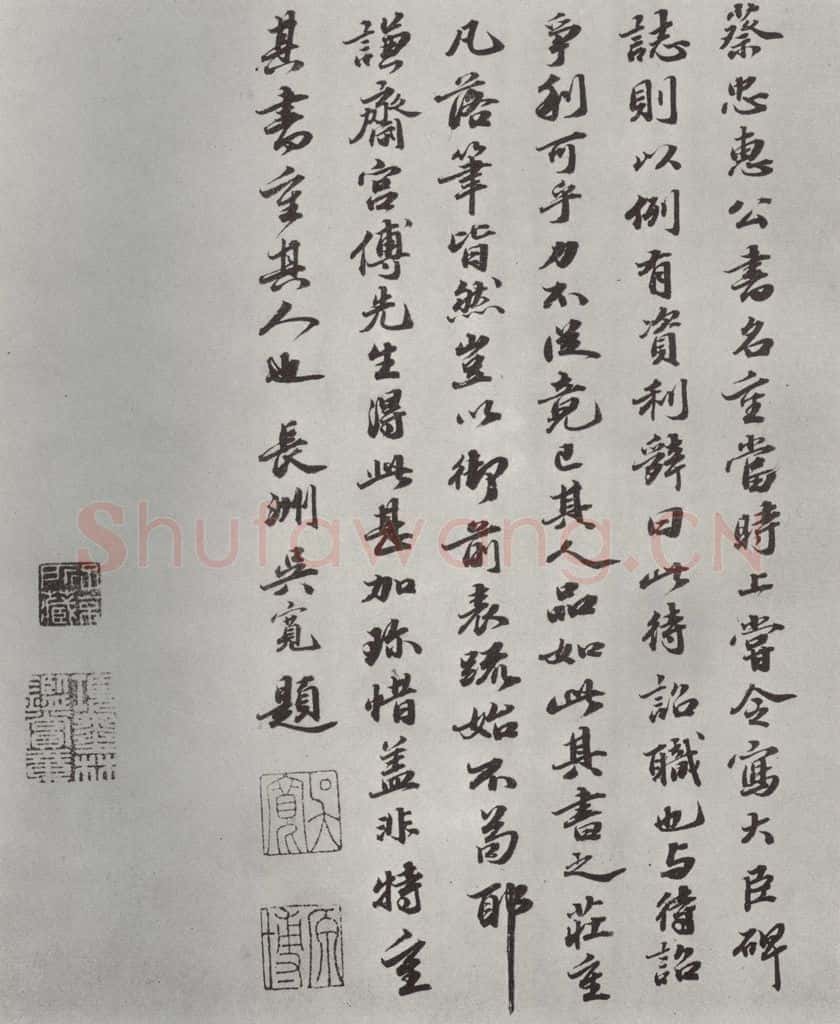 蔡忠惠公書名重當時上嘗令寫大臣碑
誌則以例有資利辭曰此待詔職也与待詔
爭利可乎力不從竟已其人品如此其書之莊重
凡落筆皆然豈以御前表疏始不苟耶
謙齋宮傅先生得此甚加珎惜盖非特重
其書重其人也 長洲吳寬題
吳寬
原博
Shufawang.CN